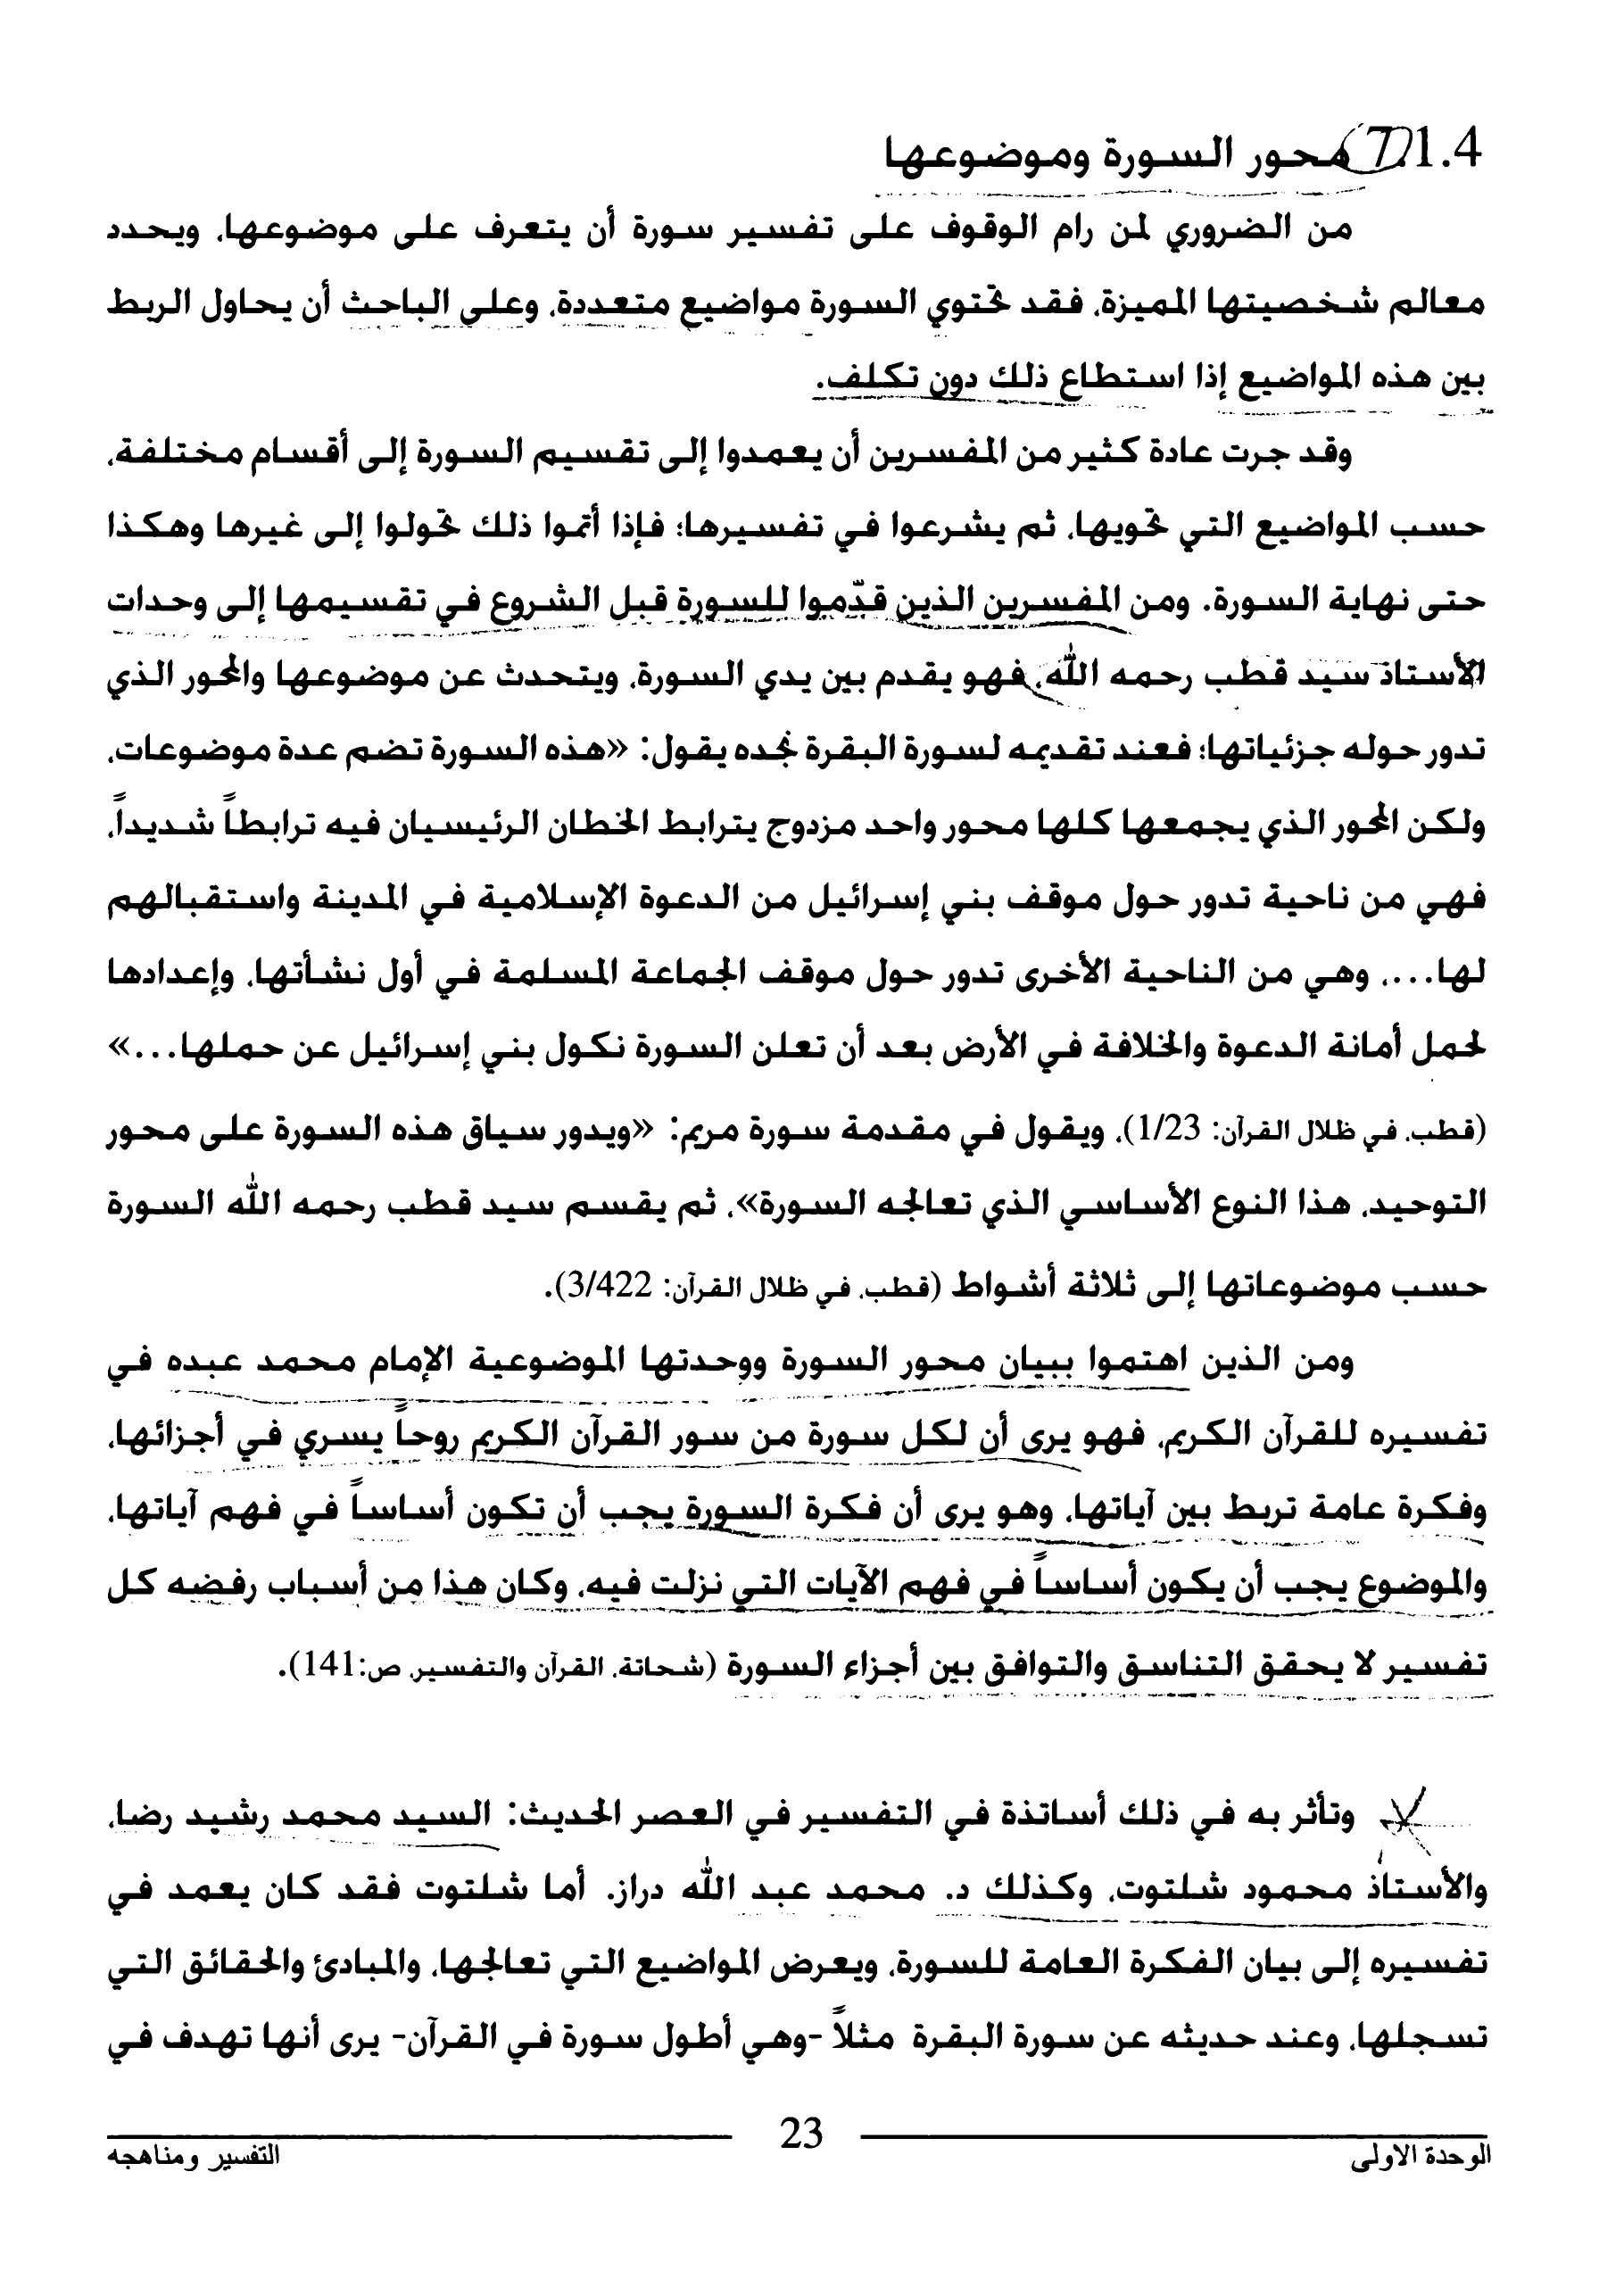 7.1.4 محور السورة وموضوعها
من الضروري لمن رام الوقوف على تفسير سورة أن يتعرف على موضوعها، ويحدد
معالم شخصيتها المميزة، فقد تحتوي السورة مواضيع متعددة، وعلى الباحث أن يحاول الربط
بين هذه المواضيع إذا استطاع ذلك دون تكلف.
وقد جرت عادة كثير من المفسرين أن يعمدوا إلى تقسيم السورة إلى أقسام مختلفة،
حسب المواضيع التي تحويها، ثم يشرعوا في تفسيرها؛ فإذا أتموا ذلك تحولوا إلى غيرها وهكذا
حتى نهاية السورة. ومن المفسرين الذين قدّموا للسورة قبل الشروع في تقسيمها إلى وحدات
الأستاذ سيد قطب رحمه الله، فهو يقدم بين يدي السورة، ويتحدث عن موضوعها والمحور الذي
تدور حوله جزئياتها؛ فعند تقديمه لسورة البقرة نجده يقول: «هذه السورة تضم عدة موضوعات،
ولكن المحور الذي يجمعها كلها محور واحد مزدوج يترابط الخطان الرئيسيان فيه ترابطاً شديداً،
فهي من ناحية تدور حول موقف بني إسرائيل من الدعوة الإسلامية في المدينة واستقبالهم
لها...، وهي من الناحية الأخرى تدور حول موقف الجماعة المسلمة في أول نشأتها، وإعدادها
لحمل أمانة الدعوة والخلافة في الأرض بعد أن تعلن السورة نكول بني إسرائيل عن حملها...»
(قطب، في ظلال القرآن: 1/23)، ويقول في مقدمة سورة مريم: «ويدور سياق هذه السورة على محور
التوحيد، هذا النوع الأساسي الذي تعالجه السورة»، ثم يقسم سيد قطب رحمه الله السورة
حسب موضوعاتها إلى ثلاثة أشواط (قطب، في ظلال القرآن: 3/422).
ومن الذين اهتموا ببيان محور السورة ووحدتها الموضوعية الإمام محمد عبده في
تفسيره للقرآن الكريم، فهو يرى أن لكل سورة من سور القرآن الكريم روحاً يسري في أجزائها،
وفكرة عامة تربط بين آياتها، وهو يرى أن فكرة السورة يجب أن تكون أساساً في فهم آياتها،
والموضوع يجب أن يكون أساساً في فهم الآيات التي نزلت فيه، وكان هذا من أسباب رفضه كل
تفسير لا يحقق التناسق والتوافق بين أجزاء السورة (شحاتة، القرآن والتفسير، ص:141).
وتأثر به في ذلك أساتذة في التفسير في العصر الحديث: السيد محمد رشيد رضا،
والأستاذ محمود شلتوت، وكذلك د. محمد عبد الله دراز. أما شلتوت فقد كان يعمد في
تفسيره إلى بيان الفكرة العامة للسورة، ويعرض المواضيع التي تعالجها، والمبادئ والحقائق التي
تسجلها، وعند حديثه عن سورة البقرة مثلاً -وهي أطول سورة في القرآن- يرى أنها تهدف في
23
الوحدة الاولى
التفسير ومناهجه